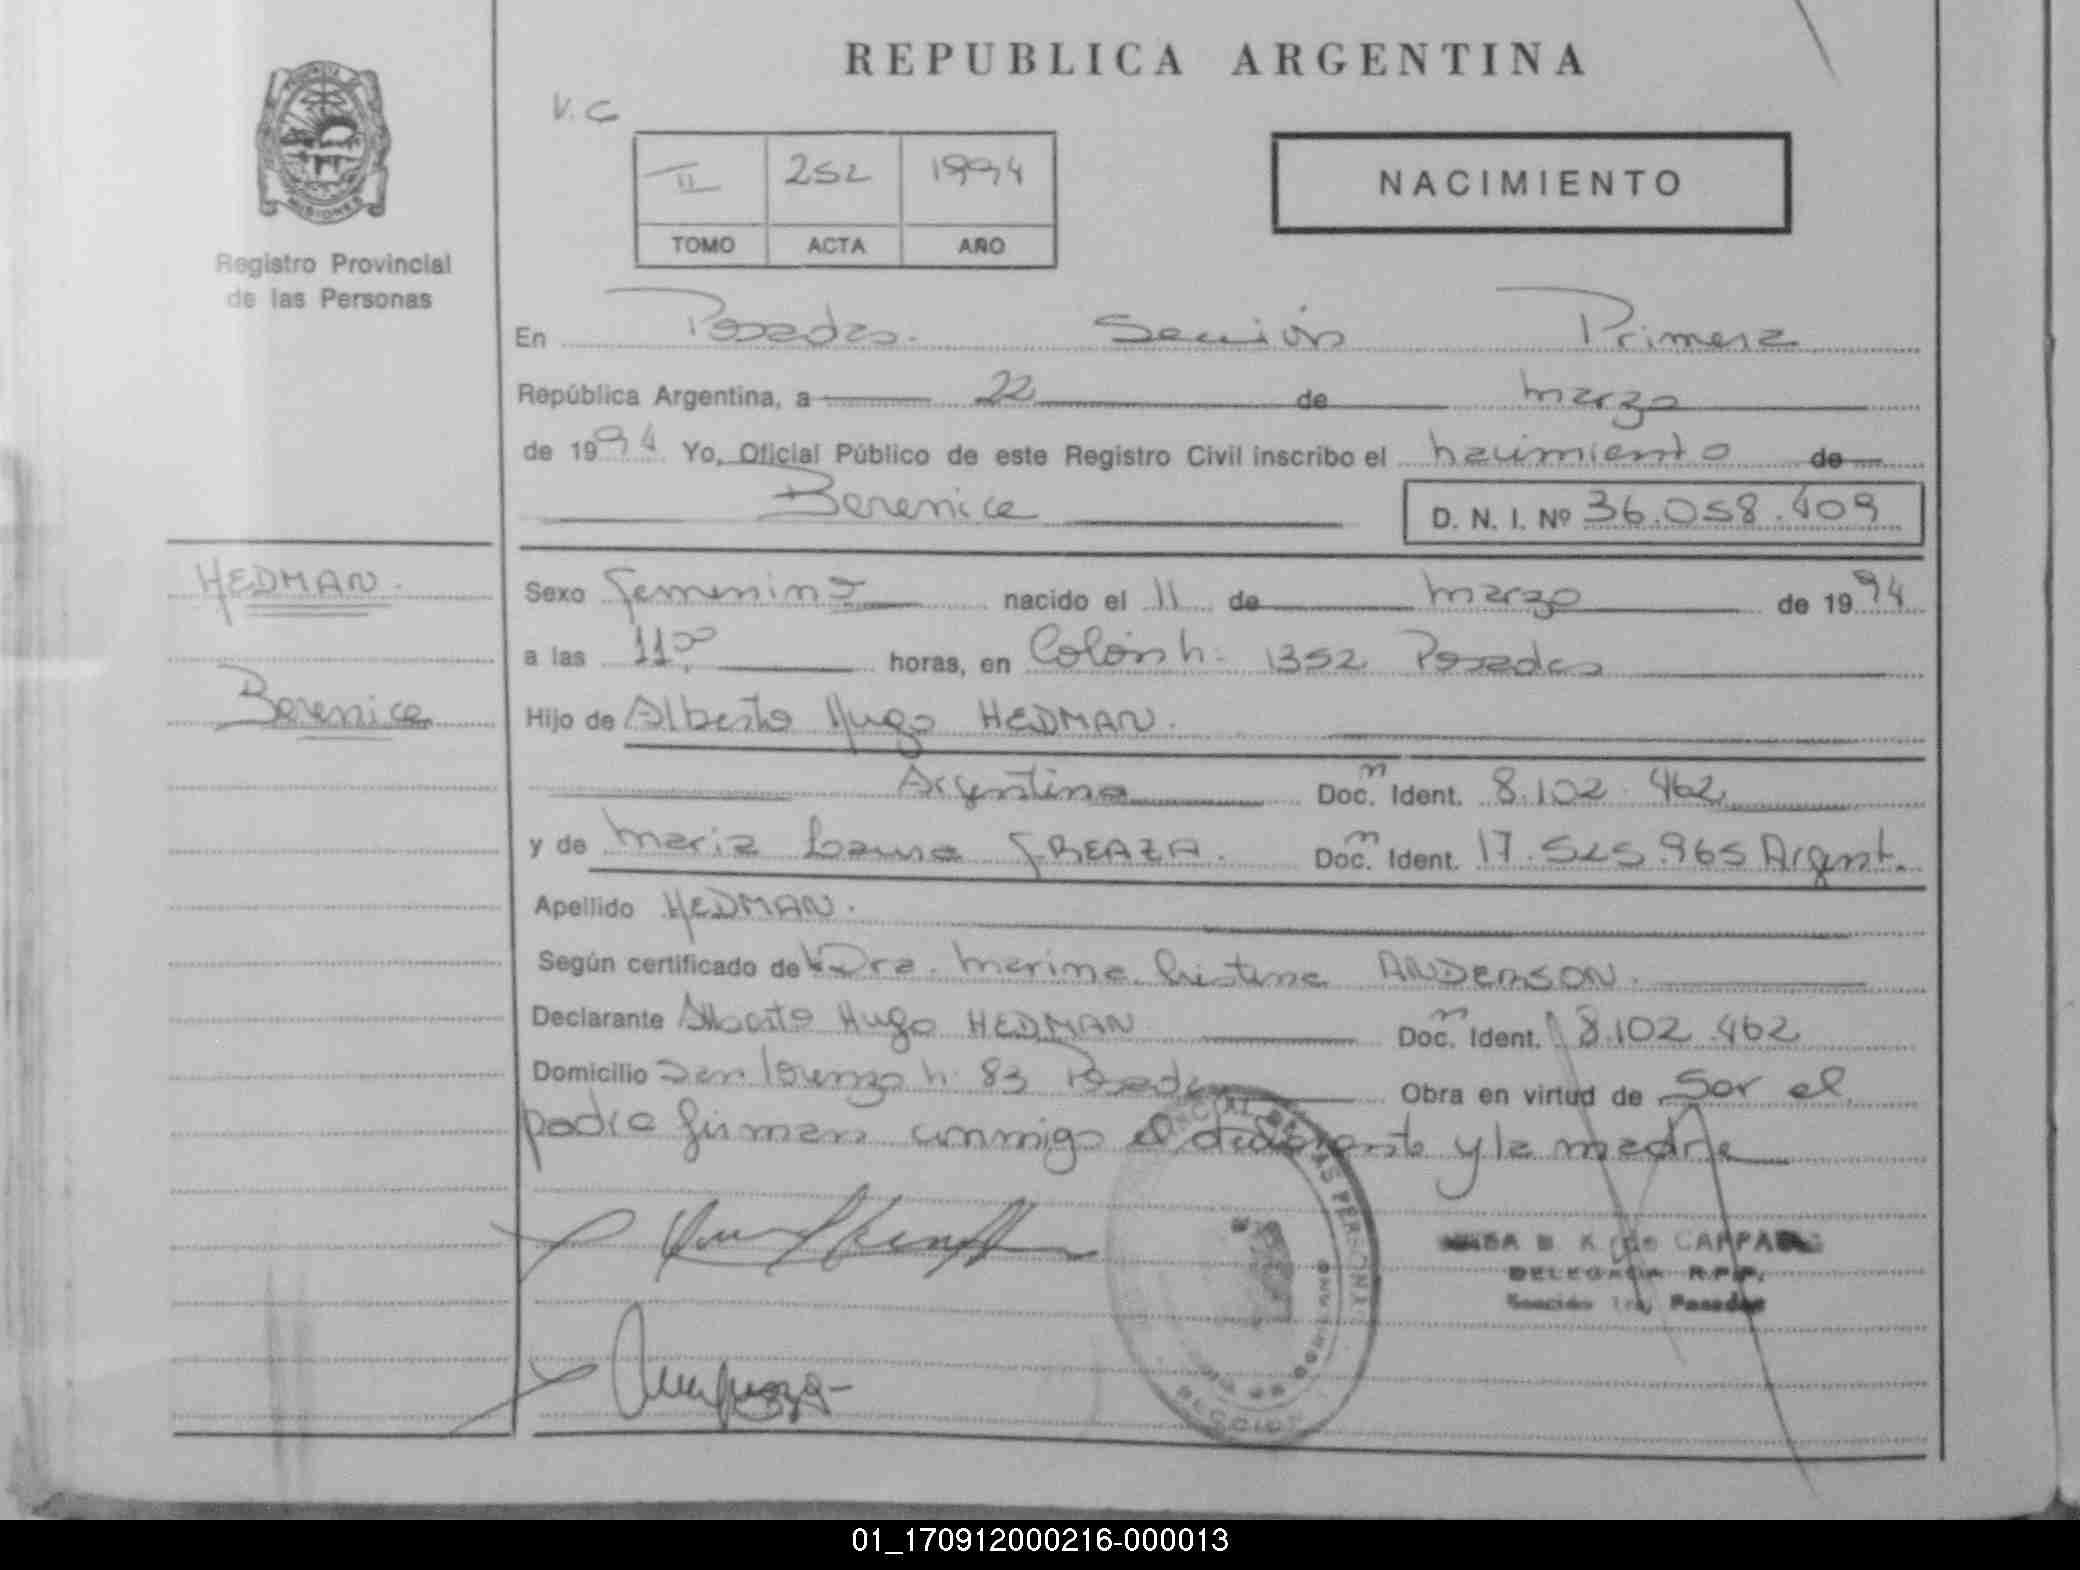 REPUBLICA ARGENTINA
V.C
II 252 1994
TOMO ACTA AÑO
NACIMIENTO
MISIONES
Registro Provincial
de las Personas
En Posadas. Sección Primera
República Argentina, a 22 de marzo
de 1994 Yo, Oficial Público de este Registro Civil inscribo el nacimiento de
Berenice
D. N. I. Nº 36.058.409
HEDMAN.
Berenice
Sexo femenino nacido el 11 de marzo de 1994
a las 11.00 horas, en Colón n: 1352 Posadas
Hijo de Alberto Hugo HEDMAN.
Argentino Doc. Ident. 8.102.462
y de Maria Laura GREAZA. Doc. Ident. 17.525.965 Argent.
Apellido HEDMAN.
Según certificado de Dra. Marina Cristina ANDERSON.
Declarante Alberto Hugo HEDMAN Doc. Ident. 8.102.462
Domicilio San Lorenzo n: 83 Posadas Obra en virtud de Ser el
padre firman conmigo el declarante y la madre
B. K. de CAPPA
DELEGADA R.P.P.
Sección 1ra. Posadas
01_170912000216-000013